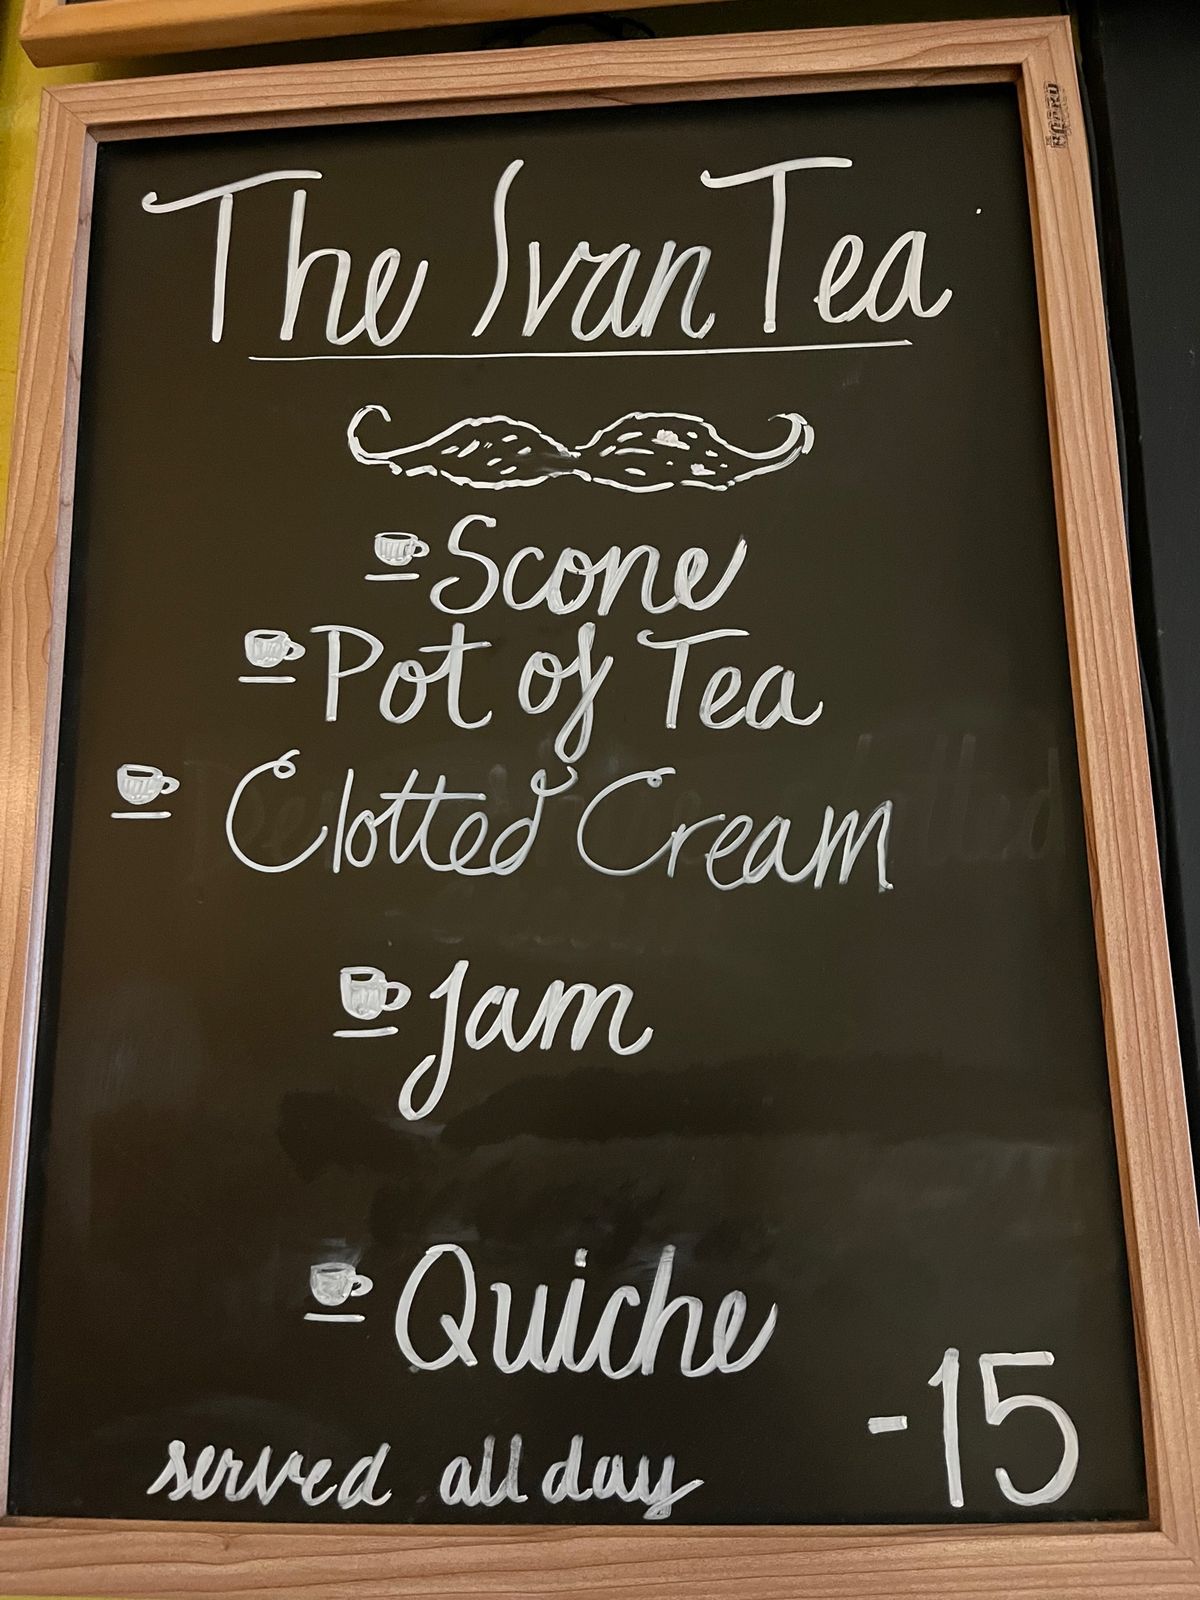 The Ivan Tea
Scone
Pot of Tea
Clotted Cream
Jam
Quiche
-15
served all day